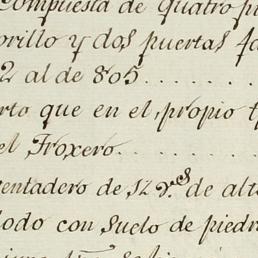 Compuesta de quatro p
orillo y dos puertas fa
2 al de 805........
rto que en el, propio t
el Froxero.........
entadero de 12 v.rs de alt
lodo con suelo de piedr